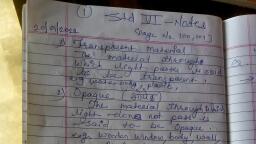 1
Std VI - Notes
20/01/2022 (Page No. 100, 101)
1) Transparent material
The material through
which light passes is said
to be transparent
eg. water, glass,
2) Opaque
The material through which
light does not pass is
said to be opaque.
eg. wooden window, body, wall,